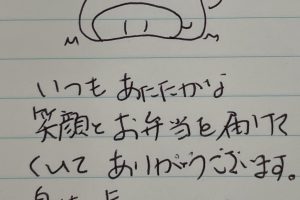 いつも あたたかな
笑顔と お弁当を 届けて
くれて ありがとうございます。